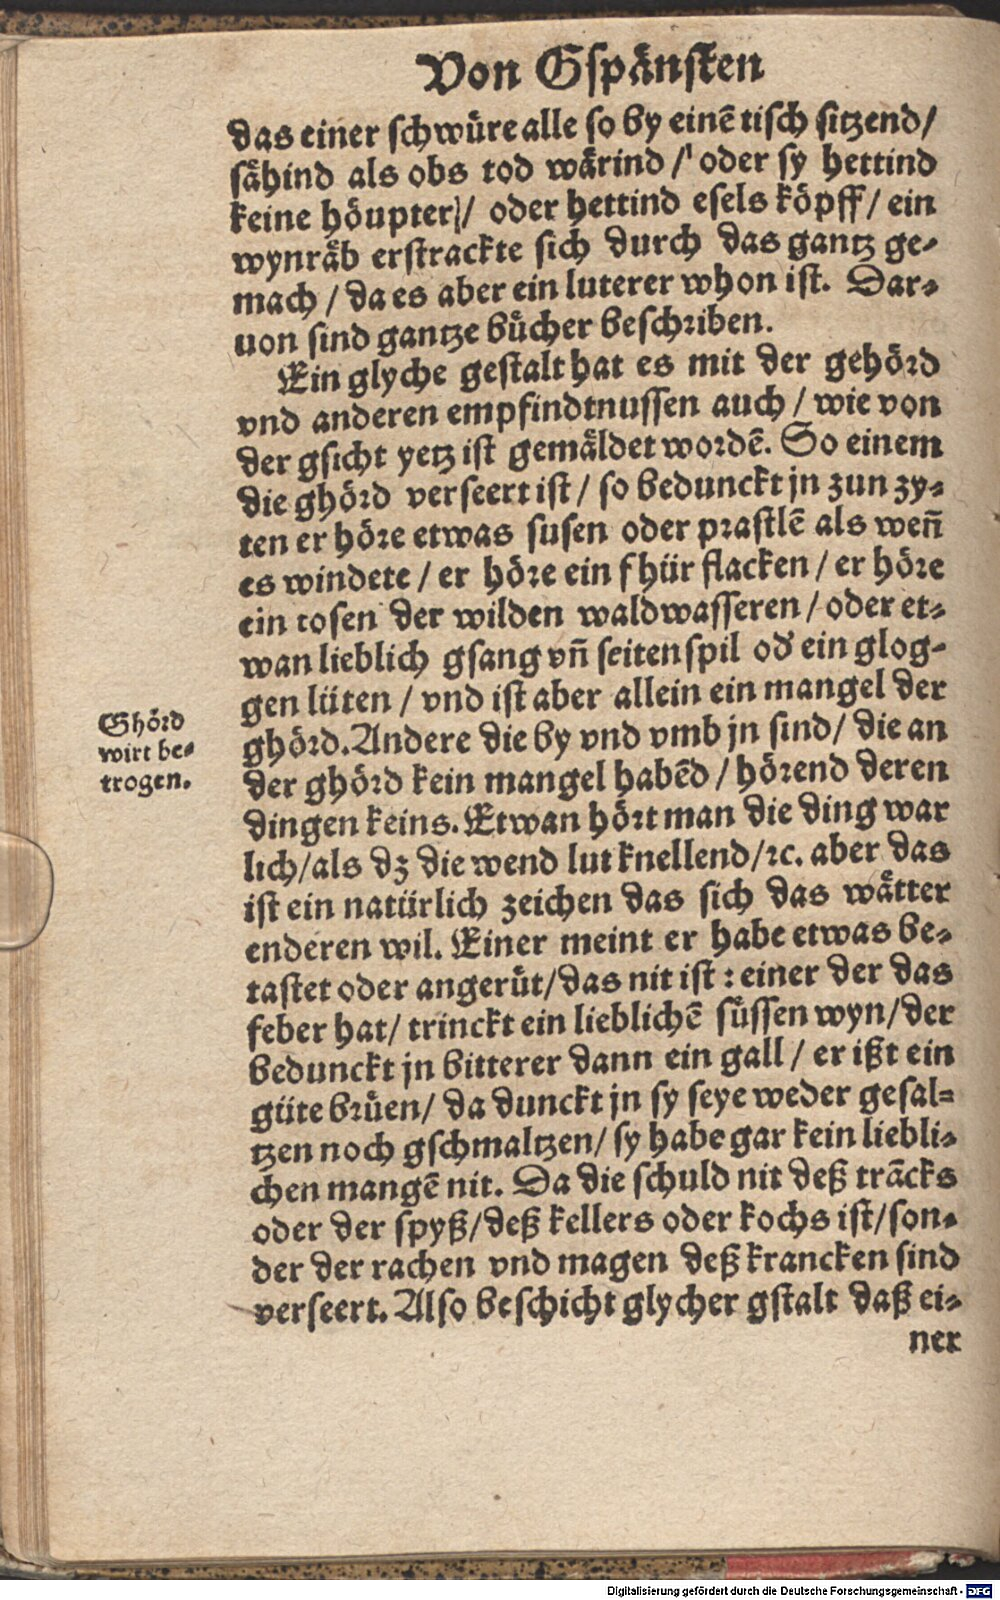 Von Gspånsten
das einer schwüre alle so by einē tisch sitzend/
såhind als obs tod wårind / oder sy hettind
keine höupter/ oder hettind esels köpff/ ein
wynråb erstrackte sich durch das gantz ge-
mach / da es aber ein luterer whon ist. Dar-
uon sind gantze bücher beschriben.
Ein glyche gestalt hat es mit der gehörd
vnd anderen empfindtnussen auch / wie von
der gsicht yetz ist gemåldet wordē. So einem
die ghörd verseert ist / so bedunckt jn zun zy-
ten er höre etwas susen oder prastlē als weñ
es windete / er höre ein fhür flacken / er höre
ein tosen der wilden waldwasseren / oder et-
wan lieblich gsang vñ seitenspil od' ein glog-
gen lüten / vnd ist aber allein ein mangel der
ghörd. Andere die by vnd vmb jn sind/ die an
der ghörd kein mangel habēd / hörend deren
dingen keins. Etwan hört man die ding war
lich/als dz die wend lut knellend/ꝛc. aber das
ist ein natürlich zeichen das sich das wåtter
enderen wil. Einer meint er habe etwas be-
tastet oder angerůt/das nit ist : einer der das
feber hat/ trinckt ein lieblichē süssen wyn/der
bedunckt jn bitterer dann ein gall / er ißt ein
güte brüen/ da dunckt jn sy seye weder gesal-
tzen noch gschmaltzen/ sy habe gar kein liebli-
chen mangē nit. Da die schuld nit deß trācks
oder der spyß/deß kellers oder kochs ist/son-
der der rachen vnd magen deß krancken sind
verseert. Also beschicht glycher gstalt daß ei-
ner
Ghörd
wirt be-
trogen.
Digitalisierung gefördert durch die Deutsche Forschungsgemeinschaft - DFG